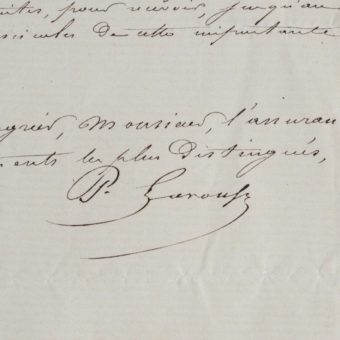 ites, pour recevoir, jusqu'au
scicules de cette importante
agréer, Monsieur, l'assuran
ments les plus distingués,
P. Larousse